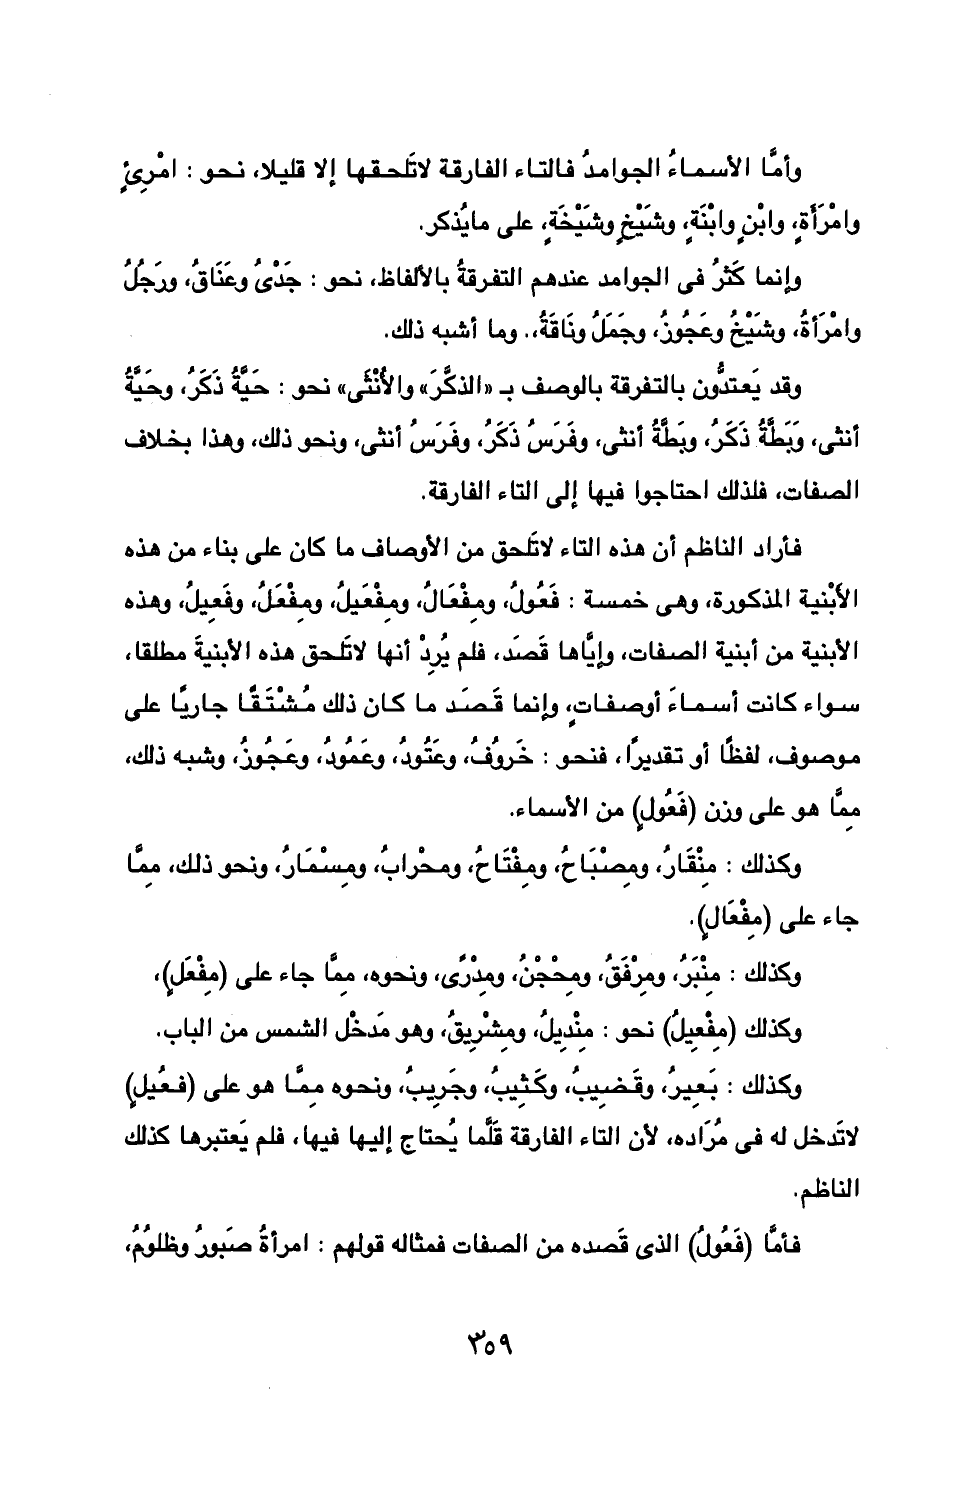 وأمَّا الأسماءُ الجوامدُ فالتاء الفارقة لاتَلحقها إلا قليلا، نحو : امْرِئٍ
وامْرَأَةٍ، وابْنٍ وابْنَةٍ، وشَيْخٍ وشَيْخَةٍ، على مايُذكر.
وإنما كَثرُ فى الجوامد عندهم التفرقةُ بالألفاظ، نحو : جَدْىُ وعَنَاقُ، ورَجُلُ
وامْرَأةُ، وشَيْخُ وعَجُوزُ، وجَمَلُ ونَاقَةُ،. وما أشبه ذلك.
وقد يَعتدُّون بالتفرقة بالوصف بـ «الذكَّرَ» والأُنْثَى» نحو : حَيَّةُ ذَكَرُ، وحَيَّةُ
أنثى، وَبَطَّةُ ذَكَرُ، وبَطَّةُ أنثى، وفَرَسُ ذَكَرُ، وفَرَسُ أنثى، ونحو ذلك، وهذا بخلاف
الصفات، فلذلك احتاجوا فيها إلى التاء الفارقة.
فأراد الناظم أن هذه التاء لاتَلحق من الأوصاف ما كان على بناء من هذه
الأبْنية المذكورة، وهى خمسة : فَعُولُ، ومِفْعَالُ، ومِفْعَيلُ، ومِفْعَلُ، وفَعِيلُ، وهذه
الأبنية من أبنية الصفات، وإيَّاها قَصَد، فلم يُرِدْ أنها لاتَلحق هذه الأبنيةَ مطلقا،
سواء كانت أسماءَ أوصفاتٍ، وإنما قَصَد ما كان ذلك مُشْتَقًا جاريًا على
موصوف، لفظًا أو تقديرًا، فنحو : خَروُفُ، وعَتُودُ، وعَمُودُ، وعَجُوزُ، وشبه ذلك،
مِمَّا هو على وزن (فَعُولٍ) من الأسماء.
وكذلك : مِنْقَارُ، ومِصْبَاحُ، ومِفْتَاحُ، ومِحْرابُ، ومِسْمَارُ، ونحو ذلك، مِمَّا
جاء على (مِفْعَالٍ).
وكذلك : مِنْبَرُ، ومِرْفَقُ، ومِحْجْنُ، ومِدْرًى، ونحوه، مِمَّا جاء على (مِفْعَلٍ)،
وكذلك (مِفْعِيلُ) نحو : مِنْدِيلُ، ومِشْرِيقُ، وهو مَدخْل الشمس من الباب.
وكذلك : بَعِيرُ، وقَضيِبُ، وكَثيِبُ، وجَرِيبُ، ونحوه مِمَّا هو على (فعُيلٍ)
لاتَدخل له فى مُرَاده، لأن التاء الفارقة قَلَّما يُحتاج إليها فيها، فلم يَعتبرها كذلك
الناظم.
فأمَّا (فَعُولُ) الذى قَصده من الصفات فمثاله قولهم : امرأةُ صَبورُ وظلوُمُ،
٣٥٩